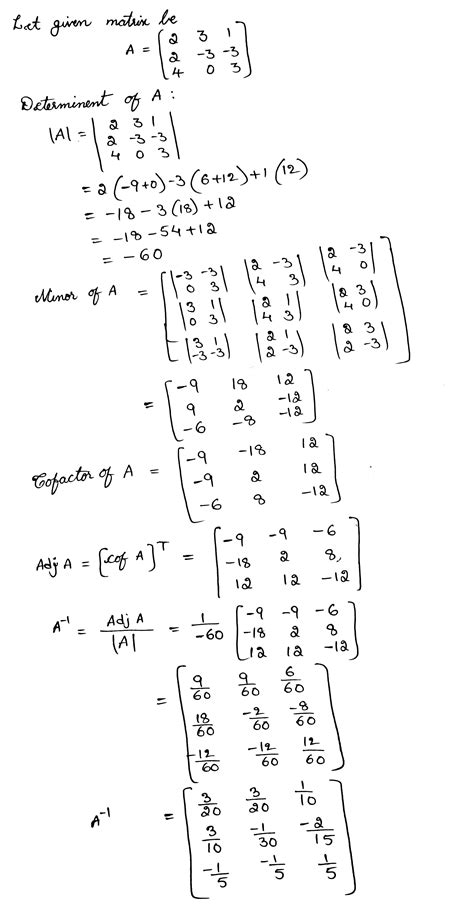 Let given matrix be
A = [2 3 1
2 -3 -3
4 0 3]
Determinent of A :
|A| = |2 3 1
2 -3 -3
4 0 3|
= 2(-9+0) -3(6+12) +1(12)
= -18 - 3(18) + 12
= -18 - 54 + 12
= -60
Minor of A = [|-3 -3 0 3| |2 -3 4 3| |2 -3 4 0|
|3 1 0 3| |2 1 4 3| |2 3 4 0|
|3 1 -3 -3| |2 1 2 -3| |2 3 2 -3|]
= [-9 18 12
9 2 -12
-6 -8 -12]
Cofactor of A = [-9 -18 12
-9 2 12
-6 8 -12]
Adj A = [cof A]^T = [-9 -9 -6
-18 2 8,
12 12 -12]
A^-1 = Adj A / |A| = 1/-60 [-9 -9 -6
-18 2 8
12 12 -12]
= [9/60 9/60 6/60
18/60 -2/60 -8/60
-12/60 -12/60 12/60]
A^-1 = [3/20 3/20 1/10
3/10 -1/30 -2/15
-1/5 -1/5 1/5]